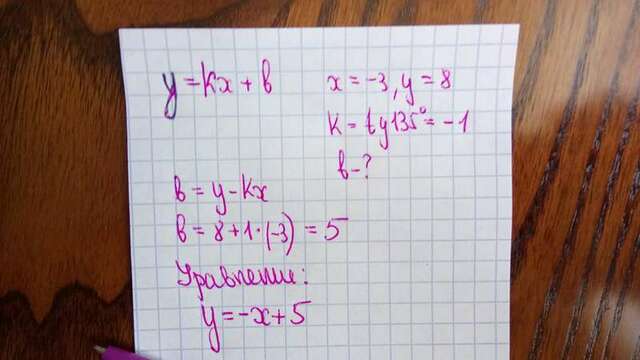 y = kx + b
x = -3, y = 8
k = tg 135° = -1
b - ?
b = y - kx
b = 8 + 1·(-3) = 5
Уравнение:
y = -x + 5